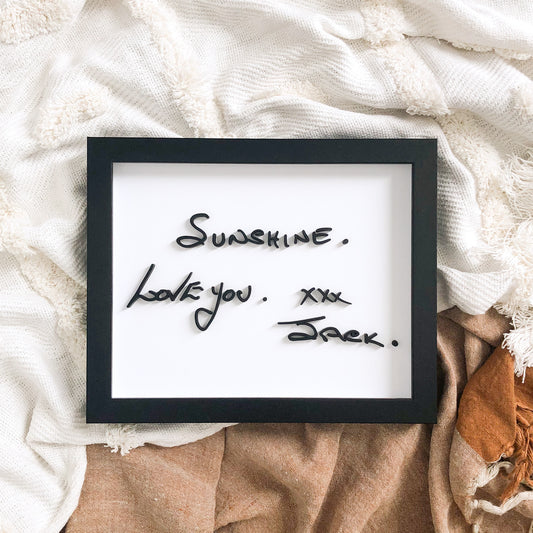 Sunshine.
Love you. xxx
Jack.